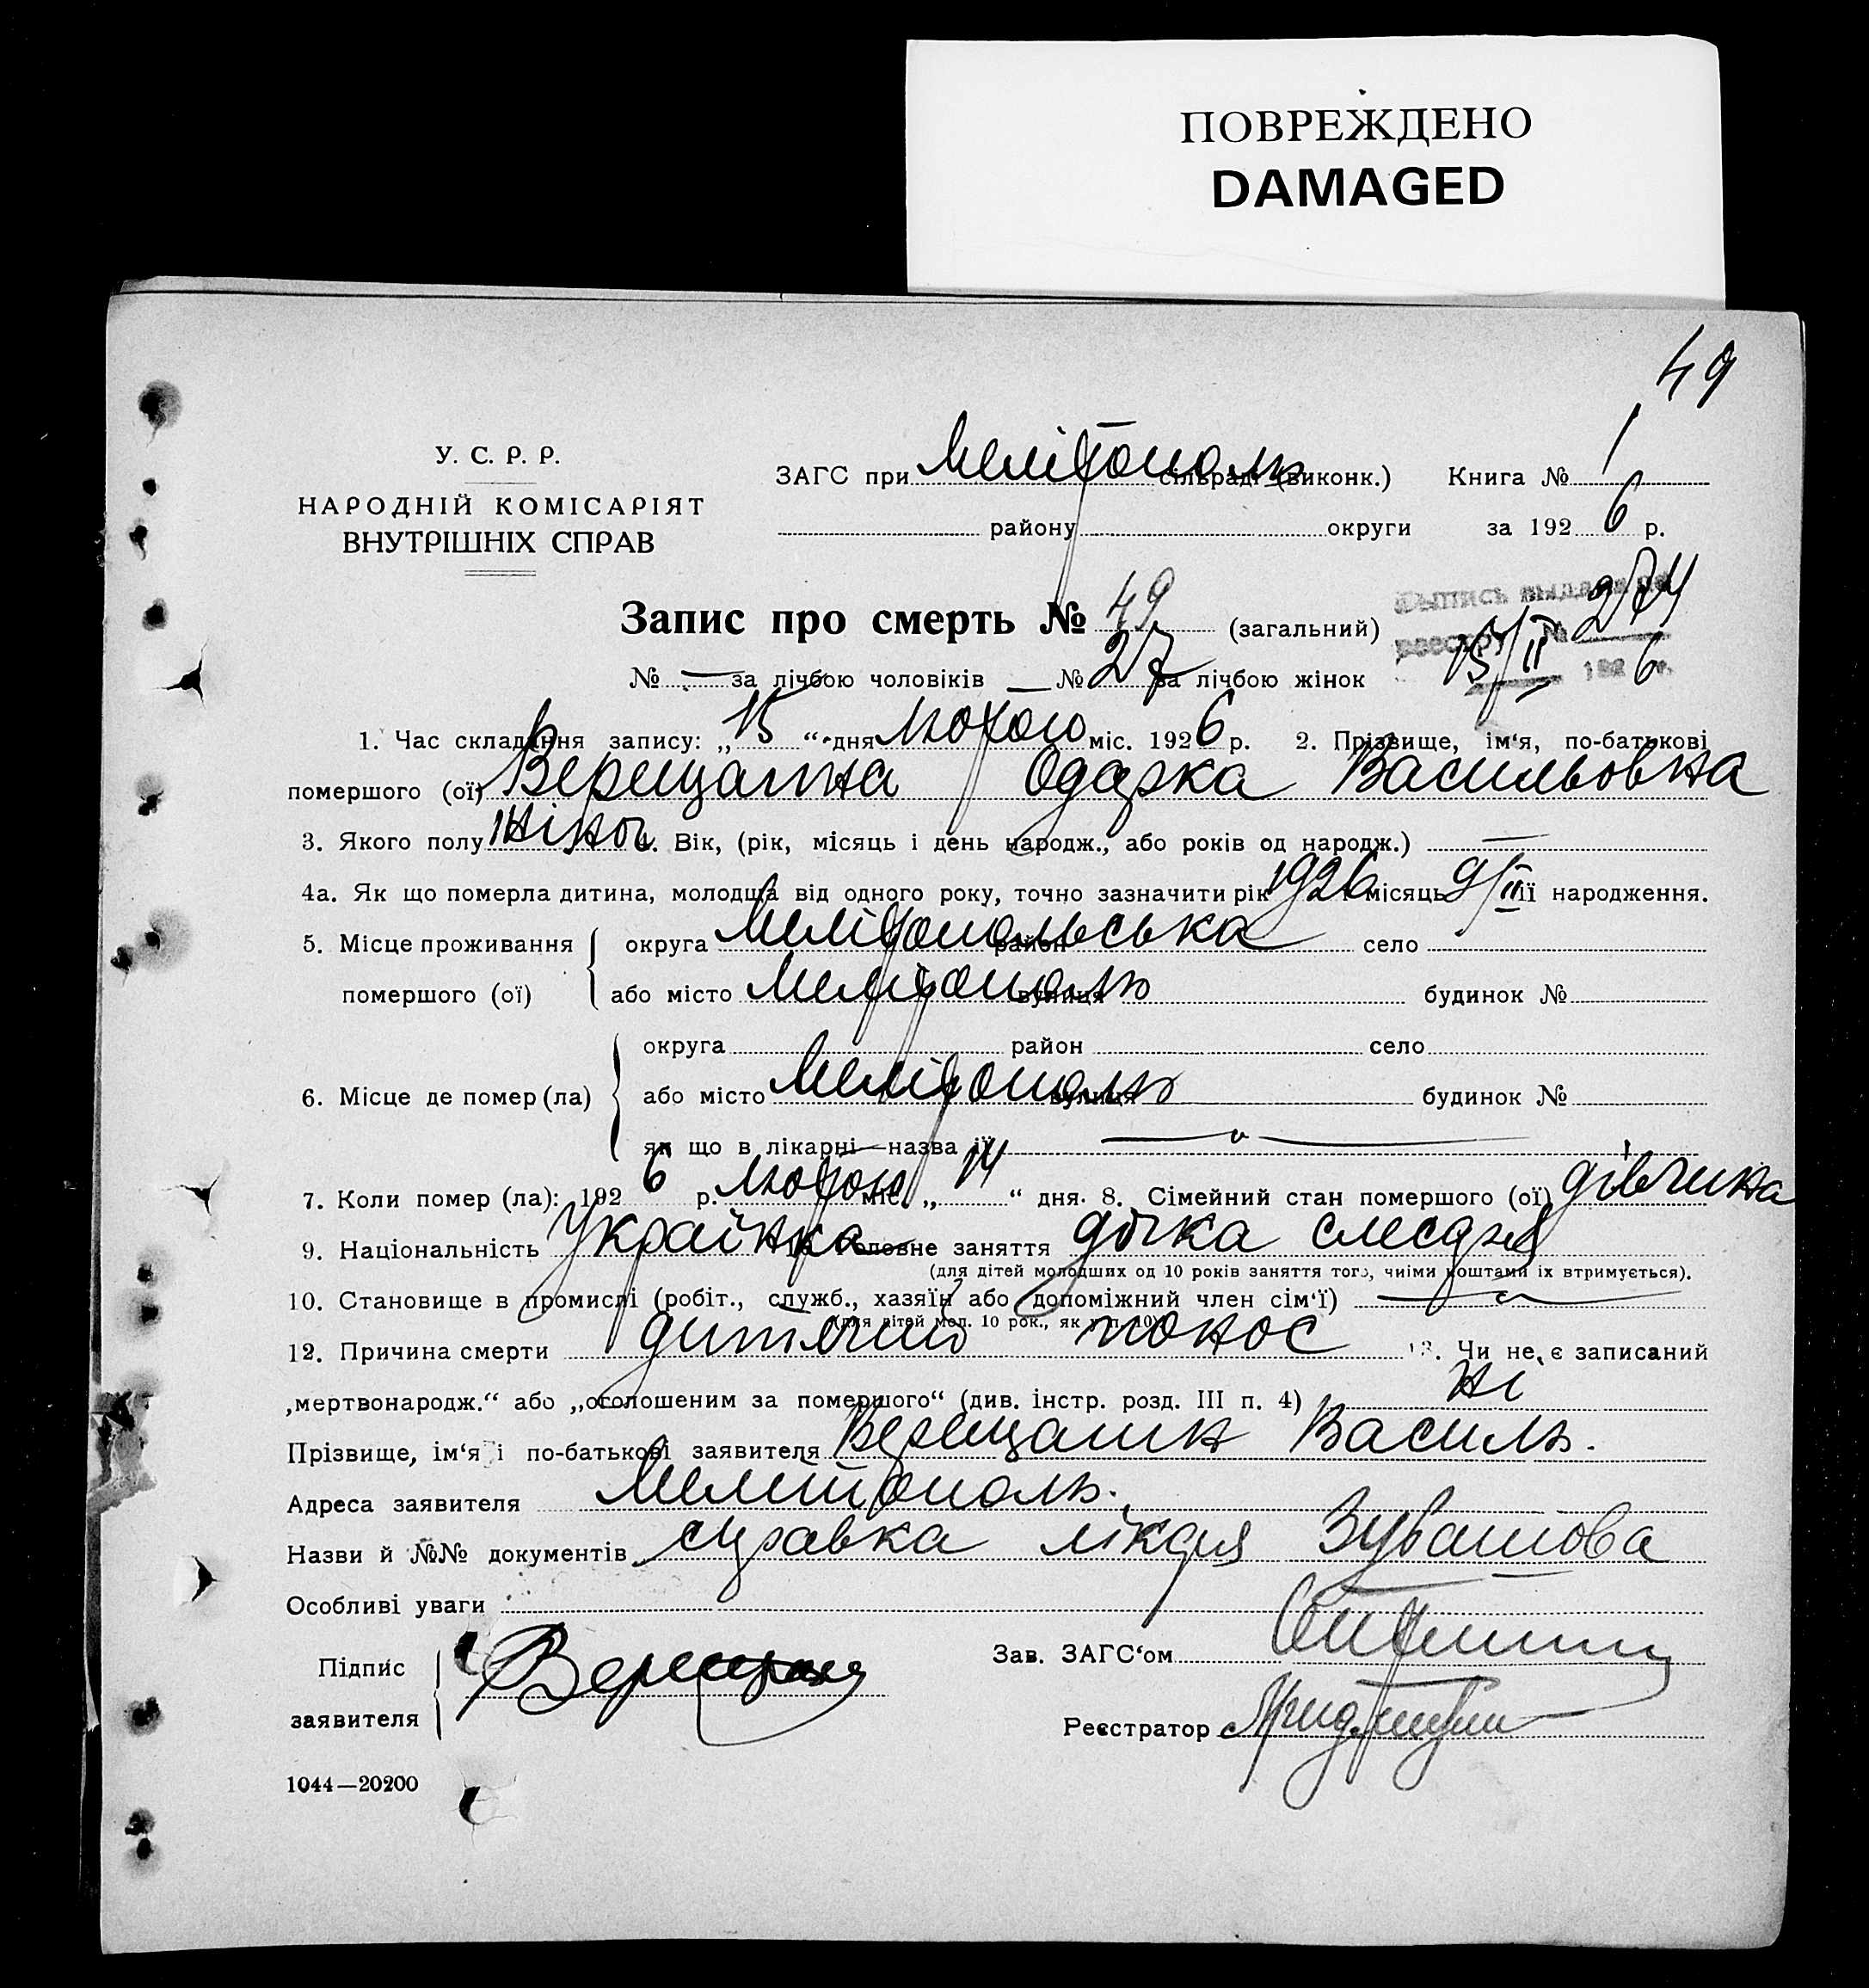 ПОВРЕЖДЕНО
DAMAGED
49
У. С. Р. Р.
НАРОДНІЙ КОМІСАРІЯТ
ВНУТРІШНІХ СПРАВ
ЗАГС при Мелітополь сільраді (виконк.) Книга № 1
району округи за 1926 р.
Запис про смерть № 49 (загальний)
Выпись выдана по 274
реестру №
15/II 1926 г.
№ — за лічбою чоловіків — № 27 за лічбою жінок
1. Час складання запису: „15“ дня Лютого міс. 1926 р. 2. Прізвище, ім‘я, по-батькові
помершого (ої) Верещагіна Одарка Васильовна
3. Якого полу жіноч 4. Вік, (рік, місяць і день народж., або років од народж.) —
4а. Як що померла дитина, молодша від одного року, точно зазначити рік 1926 місяць 9/II її народження.
5. Місце проживання помершого (ої) округа Мелітопольська район село
або місто Мелітополь вулиця будинок №
6. Місце де помер (ла) округа район село
або місто Мелітополь вулиця будинок №
як що в лікарні—назва її
7. Коли помер (ла): 1926 р. Лютого міс. „14“ дня. 8. Сімейний стан помершого (ої) дівчина
9. Національність Українка 10. Головне заняття дочка слесаря
(для дітей молодших од 10 років заняття того, чиїми коштами їх втримується).
10. Становище в промислі (робіт., служб., хазяїн або допоміжний член сім‘ї)
(для дітей мол. 10 рок., як у п. 10)
12. Причина смерти дитячий понос 13. Чи не є записаний
„мертвонародж.“ або „оголошеним за помершого“ (див. інстр. розд. III п. 4) ні
Прізвище, ім‘я і по-батькові заявителя Верещагин Василь.
Адреса заявителя Мелітополь.
Назви й №№ документів справка лікаря
Особливі уваги
Підпис заявителя
Зав. ЗАГС‘ом
Реєстратор
1044—20200